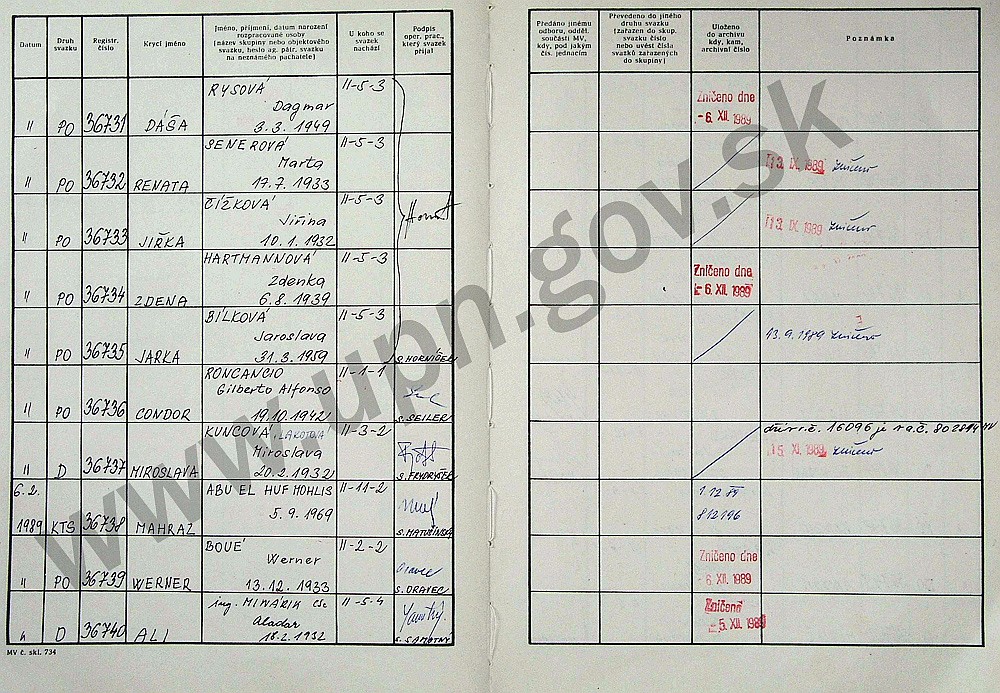 Datum
Druh svazku
Registr. číslo
Krycí jméno
Jméno, příjmení, datum narození
rozpracované osoby
(název skupiny nebo objektového
svazku, heslo ag. pátr. svazku
na neznámého pachatele)
U koho se
svazek
nachází
Podpis
oper. prac.,
který svazek
přijal
Předáno jinému
odboru, odděl.
součásti MV,
kdy, pod jakým
čís. jednacím
Převedeno do jiného
druhu svazku
(zařazen do skup.
svazku číslo
nebo uvést čísla
svazků zařazených
do skupiny)
Uloženo
do archivu
kdy, kam,
archivní číslo
Poznámka
RYSOVÁ II-5-3
Dagmar
" PO 36731 DÁŠA 3.3.1949
Zničeno dne
- 6. XII. 1989
SENEROVÁ II-5-3
Marta
" PO 36732 RENATA 17.7.1933
13. IX. 1989 zničeno
ČÍŽKOVÁ II-5-3
Jiřina
" PO 36733 JIŘKA 10.1.1932
13. IX. 1989 zničeno
HARTMANNOVÁ II-5-3
Zdenka
" PO 36734 ZDENA 6.8.1939
Zničeno dne
- 6. XII. 1989
BÍLKOVÁ II-5-3
Jaroslava
" PO 36735 JARKA 31.3.1959 S. HORNÍČEK
13.9.1989 zničeno
RONCANCIO II-1-1
Gilberto Alfonso
" PO 36736 CONDOR 19.10.1942 S. SEILER
KUNCOVÁ, LAKOTOVÁ II-3-2
Miroslava
" D 36737 MIROSLAVA 20.2.1932 S. FRYDRYŠEK
16096 je 802814 MV
15. XI. 1989 zničeno
6.2. ABU EL HUF MOHLIS II-11-2
1989 KTS 36738 MAHRAZ 5.9.1969
812196
BOUÉ II-2-2
Werner
" PO 36739 WERNER 13.12.1933 S. ORAVEC
Zničeno dne
- 6. XII. 1989
ing. MINÁRIK CSc II-5-4
Aladar
" D 36740 ALI 18.2.1932 S. SAMOTNÝ
Zničeno
- 5. XII. 1989
MV č. skl. 734
www.upn.gov.sk